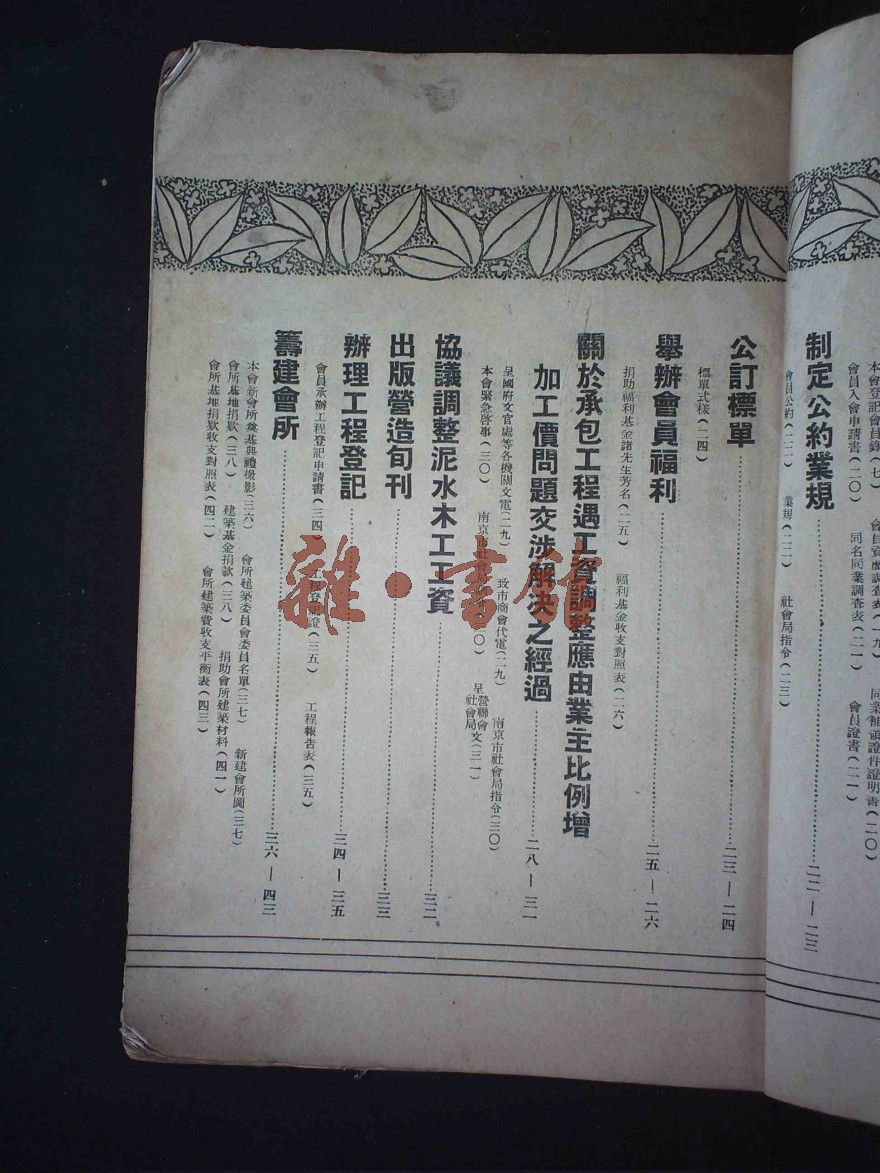 本會登記會員錄（七）
會員資歷調查表（一九）
同業補領證件證明書（二〇）
會員入會申請書（二〇）
同名同業調查表（二一）
會員證書（二一）
制定公約業規 二二—二三
會員公約（二二）
業規（二二）
社會局指令（二三）
公訂標單 二三—二四
標單式樣（二四）
舉辦會員福利 二五—二六
捐助福利基金諸先生芳名（二五）
福利基金收支對照表（二六）
關於承包工程遇工資調整應由業主比例增
加工價問題交涉解決之經過 二八—三一
呈國府文官處等各機關文電（二九）
致市商會代電（二九）
南京市社會局指令（三〇）
本會緊急啓事（三〇）
南京市社會局
呈營聯會
社會局文（三一）
協議調整泥水木工工資 三二
出版營造旬刊 三三
辦理工程登記 三四—三五
會員承辦工程登記申請書（三四）
工程登記證（三五）
工程報告表（三五）
籌建會所 三六—四三
本會新會所奠基典禮撮影（三六）
會所建築委員會委員名單（三七）
新建會所圖（三七）
會所基地捐欵（三八）
建築基金捐欵（三八）
捐助會所建築材料（四一）
會所基地捐欵收支對照表（四二）
會所建築費收支平衡表（四三）
雜·書館